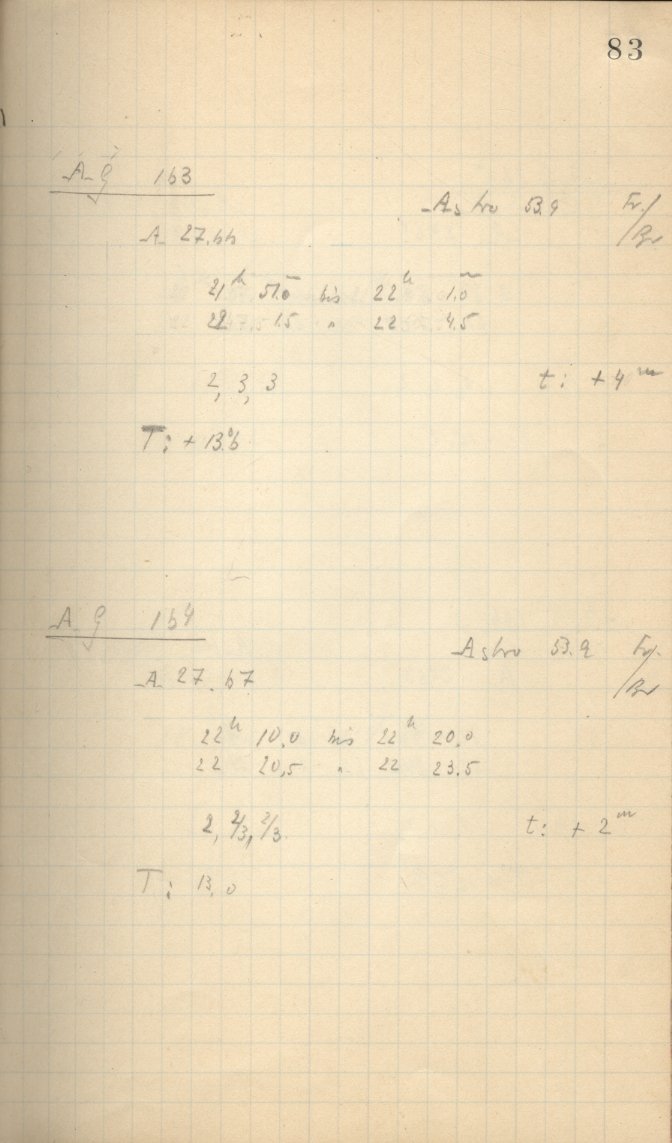 83
A G 163
Astro 53.9 Fr./
A 27.66 /Br
21h 51.0m bis 22h 1.0m
22 1.5 " 22 4.5
2, 3, 3 t: +4m
T: +13.°6
A G 164
Astro 53.9 Fr.
A 27.67 /Br
22h 10,0 bis 22h 20,0
22 20,5 " 22 23.5
2, 2/3, 2/3 t: +2m
T: 13,0